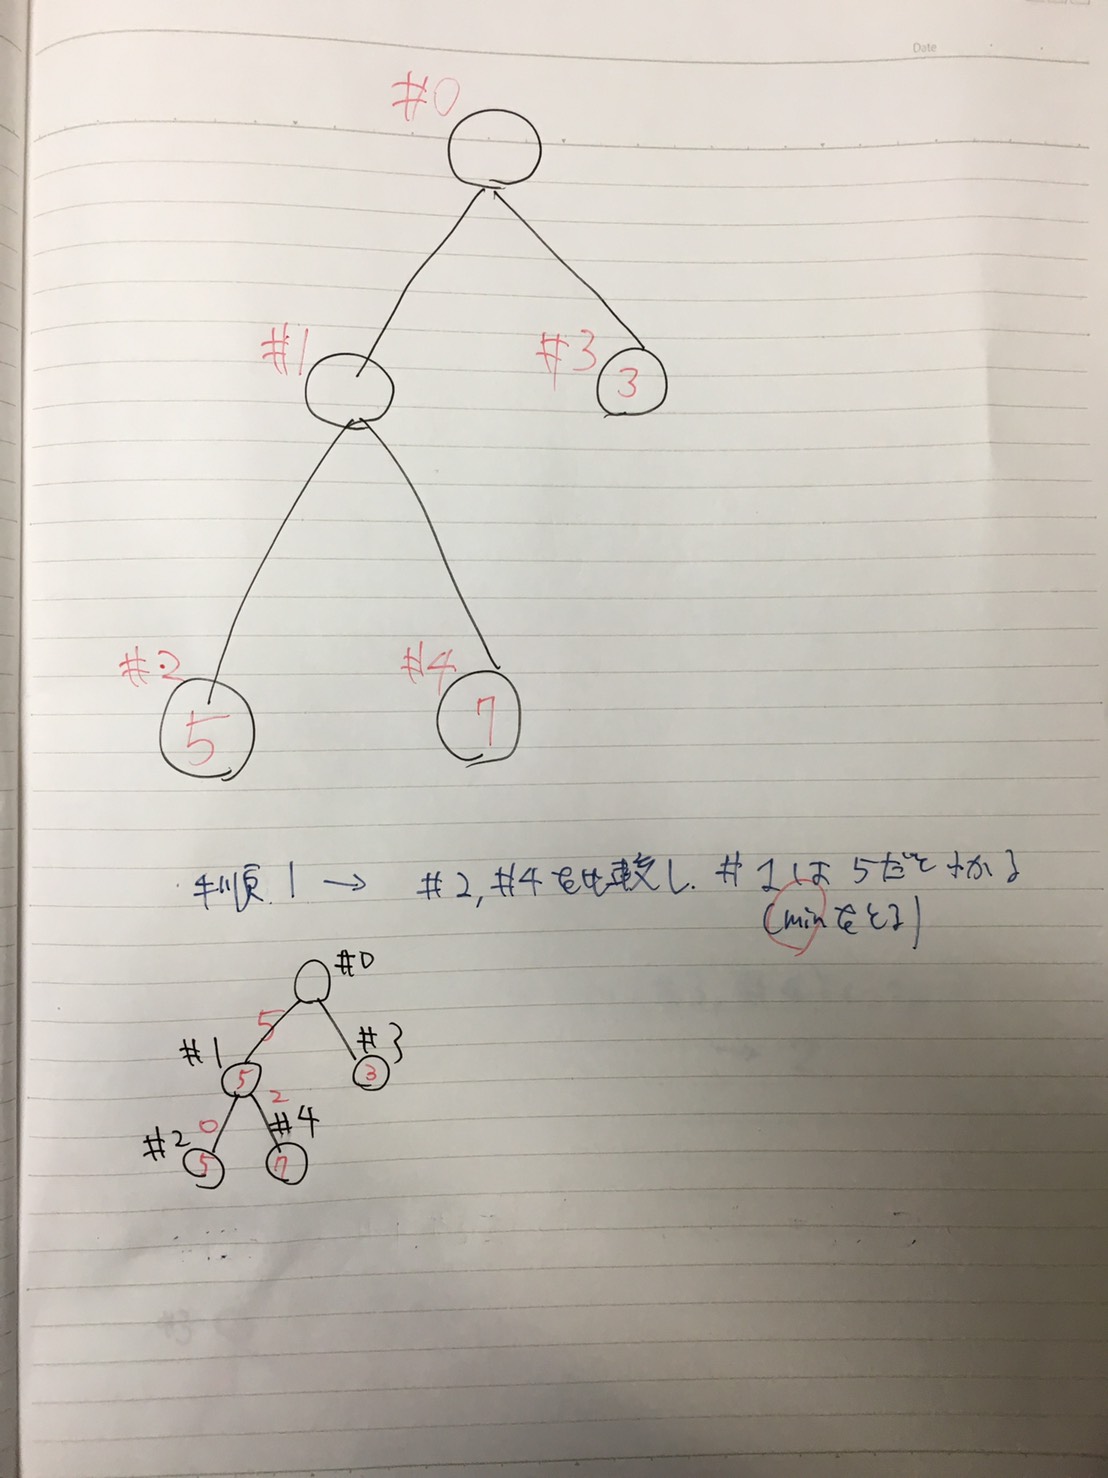 Date
#0
#1
#3
3
#2
#4
5
7
手順.1 → #2,#4を比較し. #1は5だとわかる
(minをとる)
#0
5
#1
#3
5
3
0
2
#2
#4
5
7